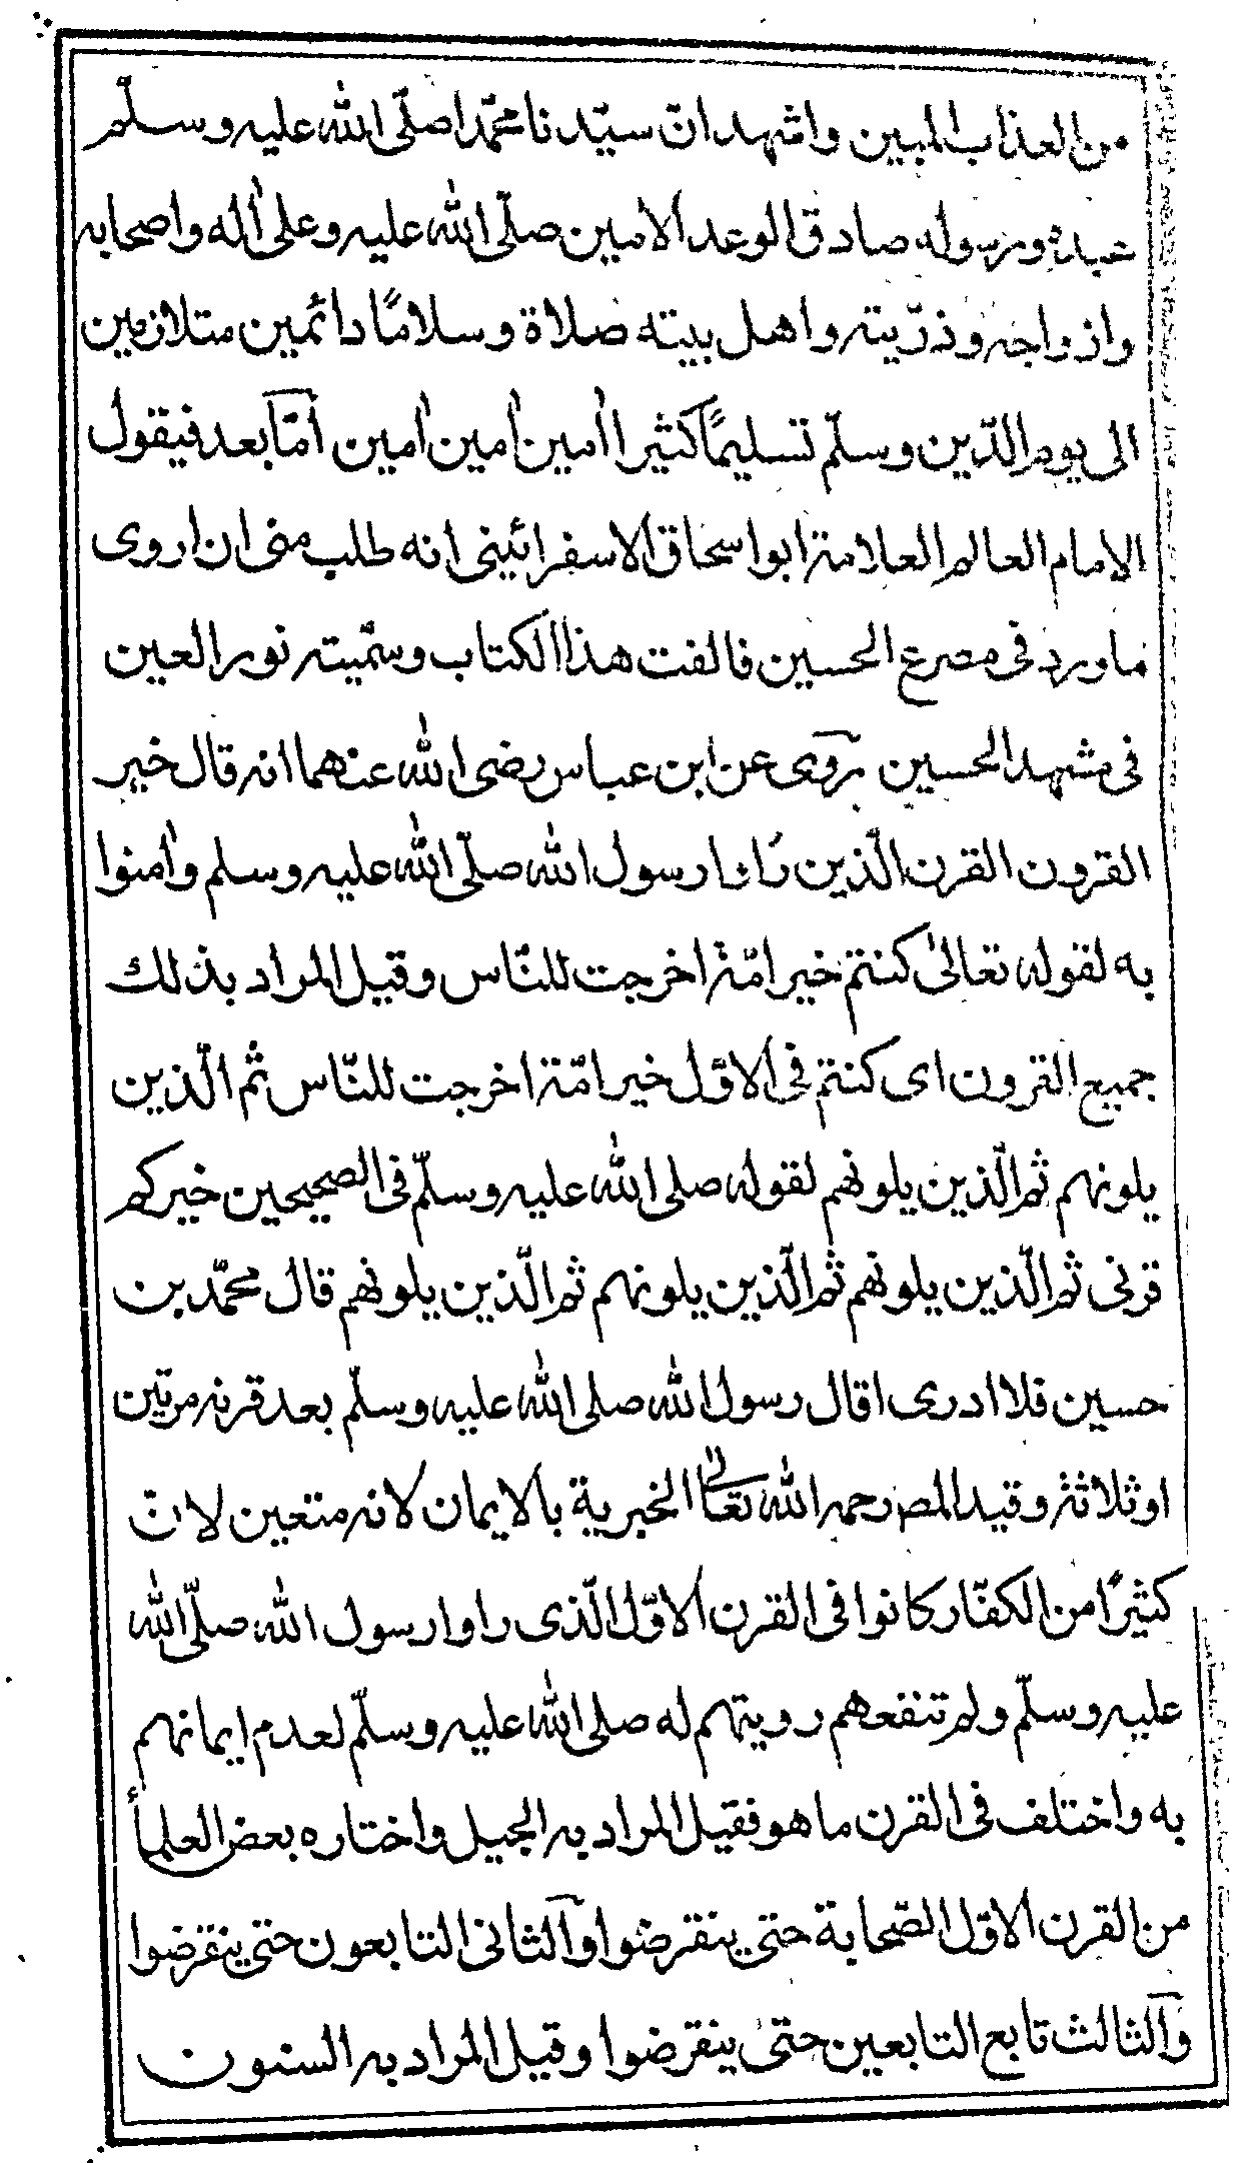 من العذاب المبين واشهد انّ سيّدنا محمّدا صلّى الله عليه وسلّم
عبده ورسوله صادق الوعد الامين صلّى الله عليه وعلى اٰله واصحابه
وازواجه وذرّيته واهل بيته صلاة وسلامًا دائمين متلازمين
الى يوم الدّين وسلّم تسليمًا كثيرا اٰمين اٰمين اٰمين امّا بعد فيقول
الامام العالم العلامة ابو اسحاق الاسفرائيني انه طلب منى ان اروى
ما ورد فى مصرع الحسين فالفت هذا الكتاب وسمّيته نور العين
فى مشهد الحسين روى عن ابن عباس رضى الله عنهما انه قال خير
القرون القرن الّذين راوا رسول الله صلّى الله عليه وسلم واٰمنوا
به لقوله تعالىٰ كنتم خير امّة اخرجت للنّاس وقيل المراد بذلك
جميع القرون اى كنتم فى الاوّل خير امّة اخرجت للنّاس ثم الّذين
يلونهم ثم الّذين يلونهم لقوله صلى الله عليه وسلّم فى الصحيحين خيركم
قرنى ثم الّذين يلونهم ثم الّذين يلونهم ثم الّذين يلونهم قال محمّد بن
حسين فلا ادرى اقال رسول الله صلى الله عليه وسلّم بعد قرنه مرتين
او ثلاثة وقيد المص رحمه الله تعالىٰ الخيرية بالايمان لانه متعين لانّ
كثيرًا من الكفّار كانوا فى القرن الاوّل الّذى راوا رسول الله صلّى الله
عليه وسلّم ولم تنفعهم رويتهم له صلى الله عليه وسلّم لعدم ايمانهم
به واختلف فى القرن ما هو فقيل المراد به الجيل واختاره بعض العلمأ
من القرن الاوّل الصّحابة حتى ينقرضوا والثانى التابعون حتى ينقرضوا
والثالث تابع التابعين حتىٰ ينقرضوا وقيل المراد به السنون